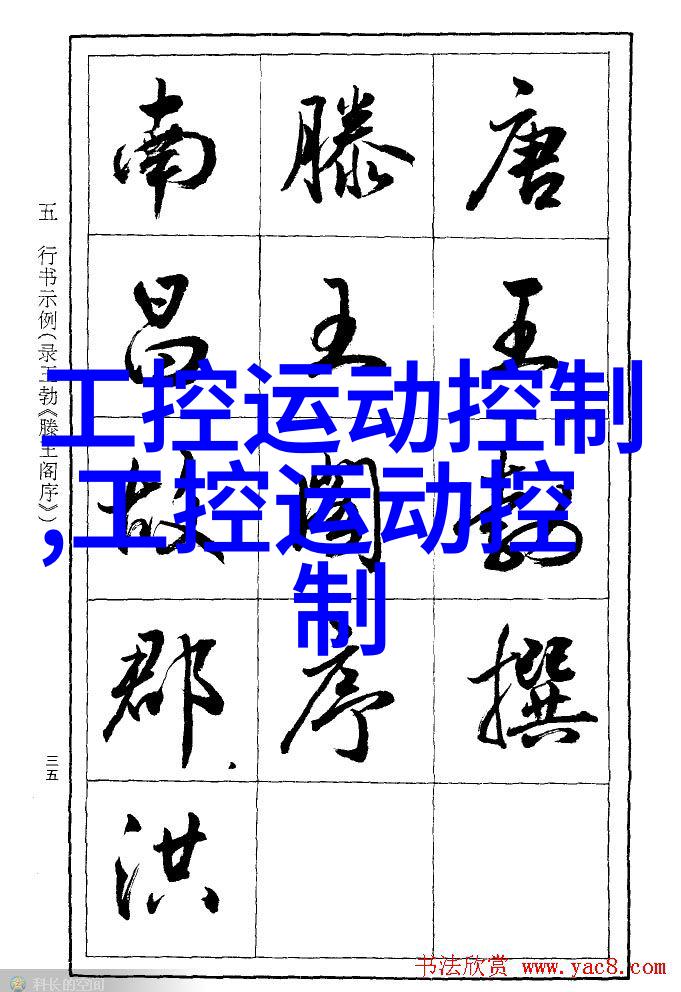 唐王勃撰
滕王阁序
南昌故郡.
洪
五 行书示例(录王勃《滕王阁序》)
三五
工控运动控制
,工控运动控
制
书法欣赏 www.yac8.com
科长的空间